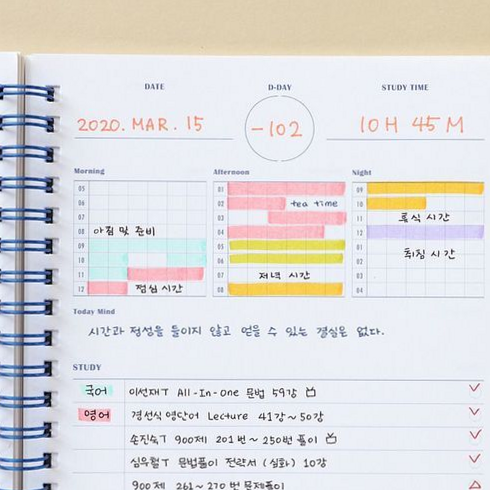 DATE D-DAY STUDY TIME
2020. MAR. 15 -102 10H 45M
Morning Afternoon Night
05 01 09
06 02 tea time 10
07 03 11 휴식 시간
08 아침 및 준비 04 12
09 05 01 취침 시간
10 06 02
11 07 저녁 시간 03
12 점심 시간 08 04
Today Mind
시간과 정성을 들이지 않고 얻을 수 있는 결실은 없다.
STUDY
국어 이선재T All-In-One 문법 59강
영어 경선식 영단어 Lecture 41강~50강
손진숙T 900제 201번~250번 풀이
심우철T 문법풀이 전략서 (심화) 10강
900제 261~270번 문제풀이